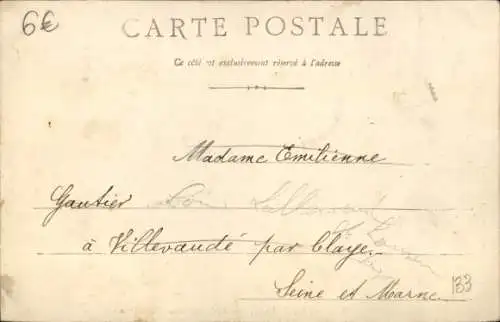 6€
CARTE POSTALE
Ce côté est exclusivement réservé à l'adresse
Madame Emilienne
Gautier
à Villevaudé par Claye
Seine et Marne
133